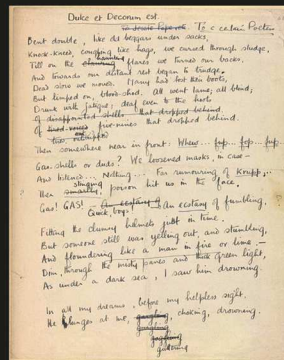 Dulce et Decorum est.
To a certain Poetess
Bent double, like old beggars under sacks,
Knock-kneed, coughing like hags, we cursed through sludge,
haunting
Till on the flares we turned our backs,
And towards our distant rest began to trudge.
Dead slow we move. Many had lost their boots,
But limped on, blood-shod. All went lame; all blind;
Drunk with fatigue; deaf even to the hoots
Of disappointed shells that dropped behind.
Of five-nines that dropped behind.
Then somewhere near in front: Whew... fup... fop... fup...
Gas shells or duds? We loosened masks, in case —
And listened... Nothing... Far rumouring of Krupp...
stinging
Then poison hit us in the face.
Gas! GAS! An ecstasy of fumbling,
Quick, boys!
Fitting the clumsy helmets just in time.
But someone still was yelling out, and stumbling,
And floundering like a man in fire or lime. —
Dim, through the misty panes and thick green light,
As under a dark sea, I saw him drowning.
In all my dreams, before my helpless sight,
He plunges at me, choking, drowning.
guttering